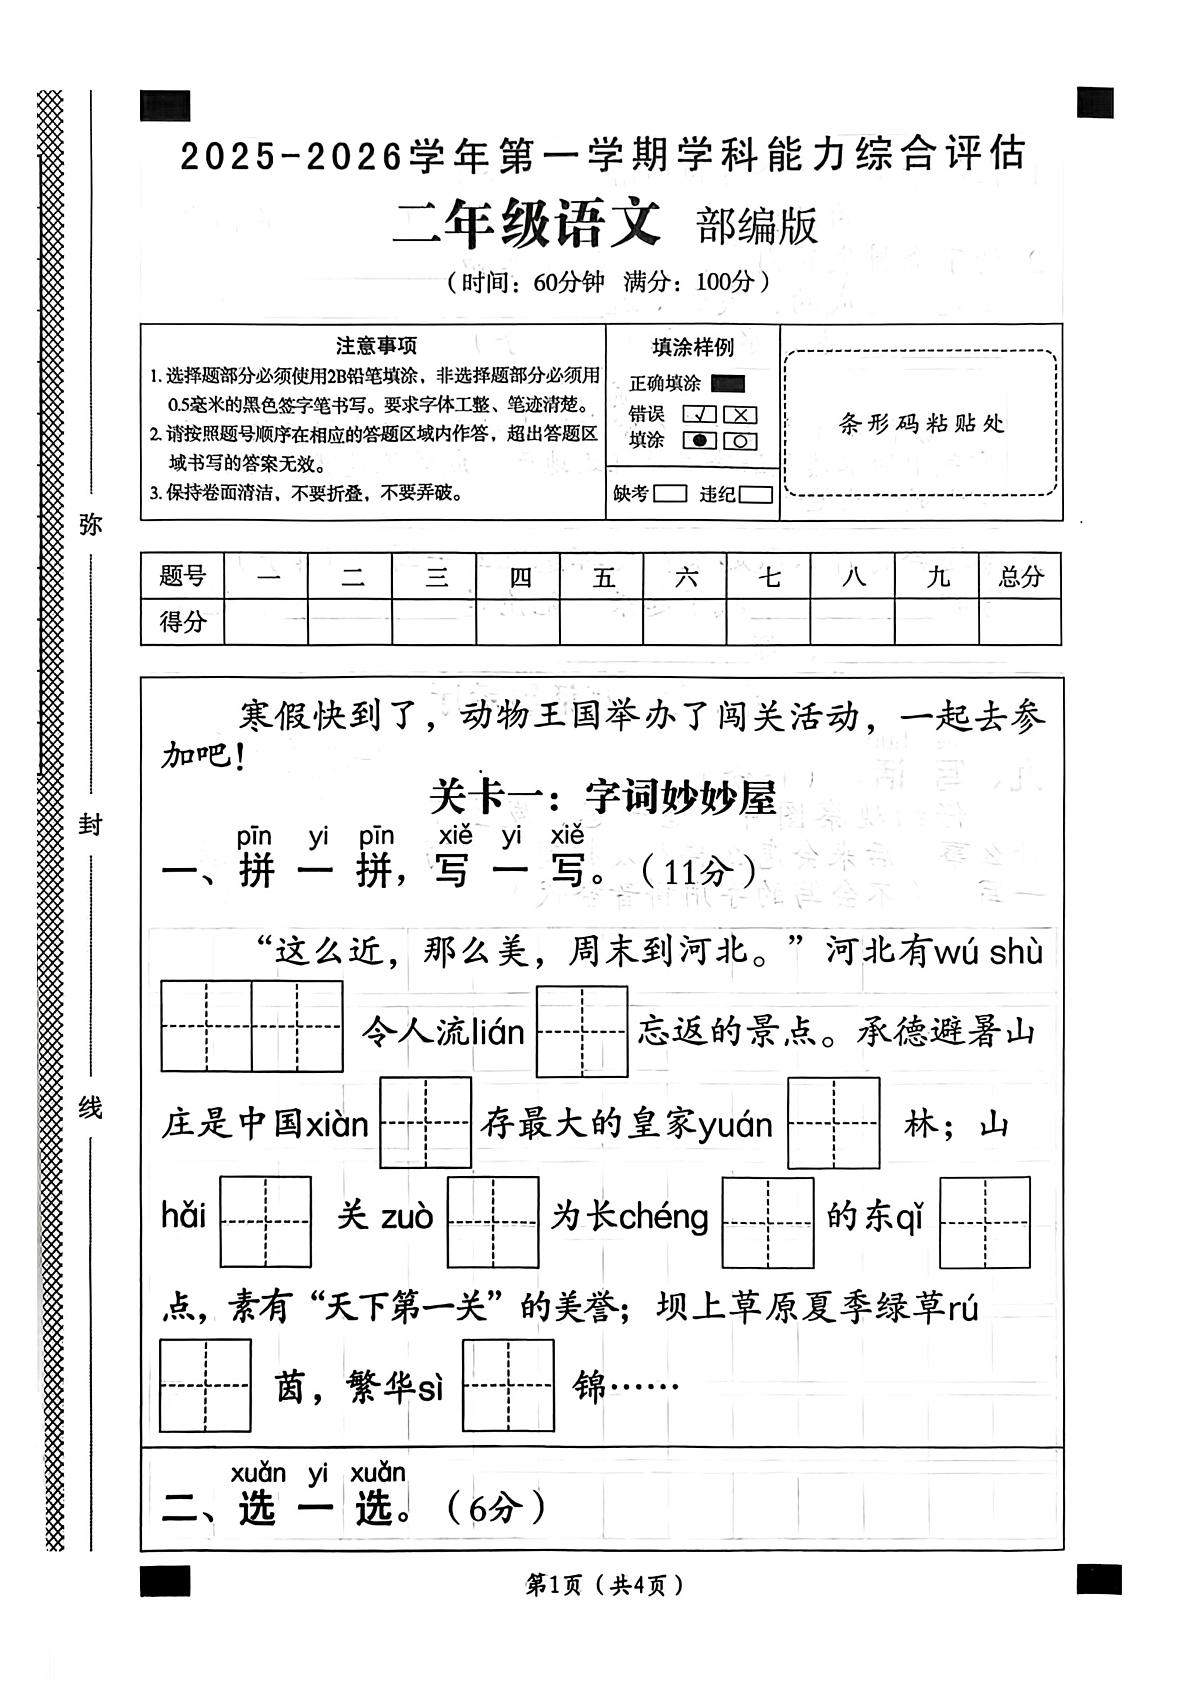 2025-2026学年第一学期学科能力综合评估
二年级语文 部编版
（时间：60分钟 满分：100分）
注意事项
1. 选择题部分必须使用2B铅笔填涂，非选择题部分必须用
0.5毫米的黑色签字笔书写。要求字体工整、笔迹清楚。
2. 请按照题号顺序在相应的答题区域内作答，超出答题区
域书写的答案无效。
3. 保持卷面清洁，不要折叠，不要弄破。
填涂样例
正确填涂
错误
填涂
缺考 违纪
条形码粘贴处
题号 一 二 三 四 五 六 七 八 九 总分
得分
弥
封
线
寒假快到了，动物王国举办了闯关活动，一起去参
加吧！
关卡一：字词妙妙屋
pīn yi pīn xiě yi xiě
一、拼一拼，写一写。（11分）
“这么近，那么美，周末到河北。”河北有wú shù
令人流lián 忘返的景点。承德避暑山
庄是中国xiàn 存最大的皇家yuán 林；山
hǎi 关 zuò 为长chéng 的东qǐ
点，素有“天下第一关”的美誉；坝上草原夏季绿草rú
茵，繁华sì 锦……
xuǎn yi xuǎn
二、选一选。（6分）
第1页（共4页）